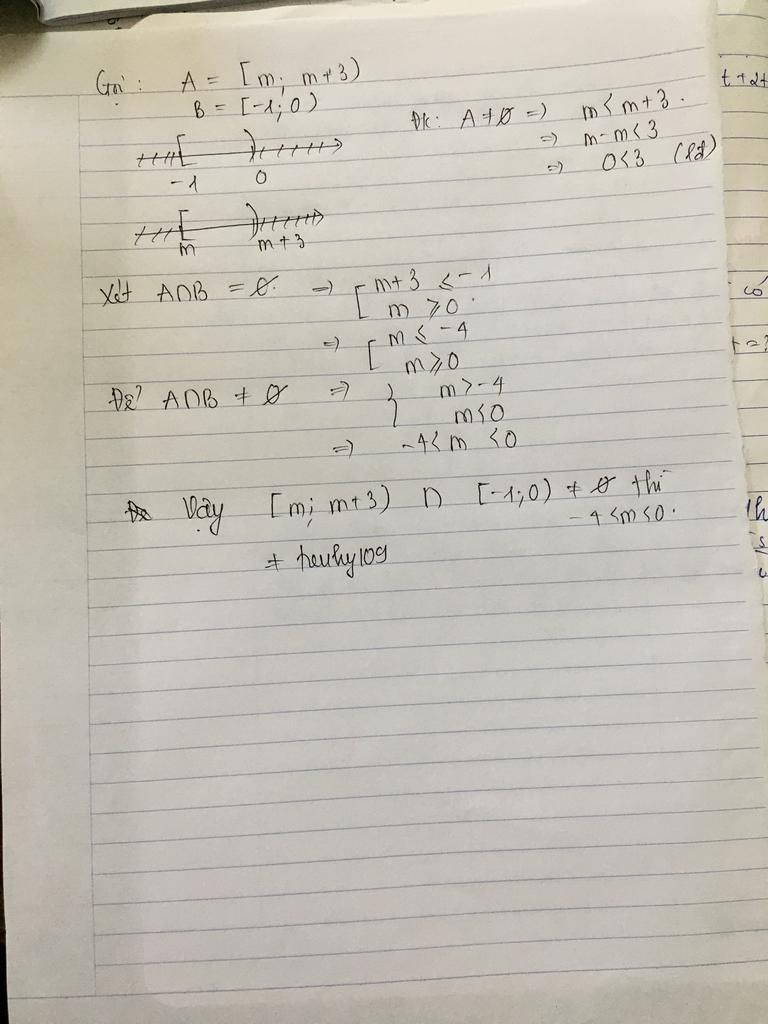 Gọi: A = [m; m+3)
B = [-1; 0)
ĐK: A ≠ ∅ => m < m+3.
=> m-m<3
=> 0<3 (lđ)
-1 0
m m+3
Xét A∩B = ∅. => [ m+3 ≤ -1
m ≥ 0.
=> [ m ≤ -4
m ≥ 0
Để A∩B ≠ ∅ => } m > -4
m < 0
=> -4 < m < 0
Vậy [m; m+3) ∩ [-1; 0) ≠ ∅ thì
-4 < m < 0.
t + 2t
có